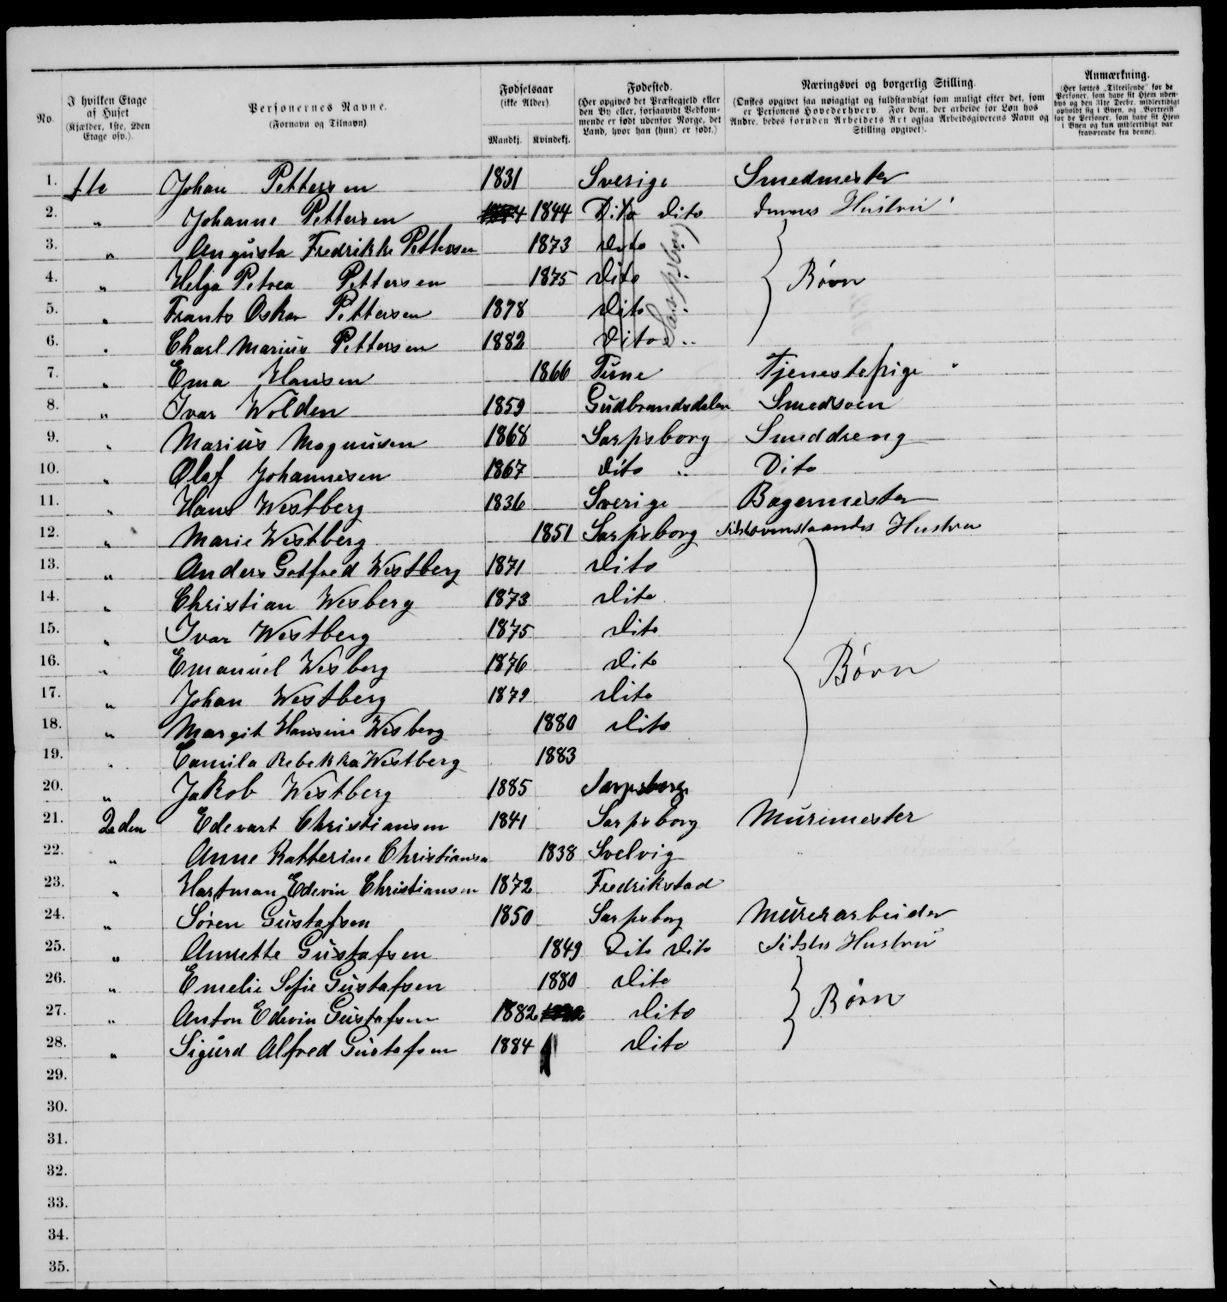 No. I hvilken Etage af Huset (Kjælder, 1ste, 2den Etage osv.). Personernes Navne. (Fornavn og Tilnavn) Fødselsaar (ikke Alder). Mandkj. Kvindekj. Fødested. (Her opgives det Præstegjeld eller den By eller, forsaavidt Vedkommende er født udenfor Norge, det Land, hvor han (hun) er født.) Næringsvei og borgerlig Stilling. (Ønskes opgivet saa nøiagtigt og fuldstændigt som muligt efter det, som er Personens Hovederhverv. For dem, der arbeide for Løn hos Andre, bedes foruden Arbeidets Art ogsaa Arbeidsgiverens Navn og Stilling opgivet). Anmærkning. (Her sættes „Tilreisende" for de Personer, som have sit Hjem udenbys og den 31te Decbr. midlertidigt opholdt sig i Byen, og „Bortreist" for de Personer, som have sit Hjem i Byen og kun midlertidigt var fraværende fra denne).
1. 1te Johan Pettersen 1831 Sverige Smedmester
2. " Johanne Pettersen 1844 Dito Dito dennes Hustru
3. " Augusta Fredrikke Pettersen 1873 Dito
4. " Helga Petrea Pettersen 1875 Dito Sarpsborg Børn
5. " Frants Oskar Pettersen 1878 Dito
6. " Charl Marius Pettersen 1882 Dito "
7. " Ema Hansen 1866 Tune Tjenestepige
8. " Ivar Wolden 1859 Gudbrandsdalen Smedsven
9. " Marius Magnusen 1868 Sarpsborg Smeddreng
10. " Olaf Johannesen 1867 Dito " Dito
11. " Hans Westberg 1836 Sverige Bagermester
12. " Marie Westberg 1851 Sarpsborg Hustru
13. " Anders Gotfred Westberg 1871 Dito
14. " Christian Wesberg 1873 Dito
15. " Ivar Westberg 1875 Dito
16. " Emanuel Wesberg 1876 Dito Børn
17. " Johan Westberg 1879 Dito
18. " Margit Hansine Wesberg 1880 Dito
19. " Camila Rebekka Westberg 1883
20. " Jakob Westberg 1885 Sarpsborg
21. 2den Edevart Christiansen 1841 Sarpsborg Muremester
22. " Anne Katterine Christiansen 1838 Svelvig
23. " Hartman Edevin Christiansen 1872 Fredrikstad
24. " Søren Gustafsen 1850 Sarpsborg Murerarbeider
25. " Annette Gustafsen 1849 Dito Dito Sidstes Hustru
26. " Emelie Sofie Gustafsen 1880 Dito
27. " Anton Edevin Gustafsen 1882 Dito Børn
28. " Sigurd Alfred Gustafsen 1884 Dito
29.
30.
31.
32.
33.
34.
35.